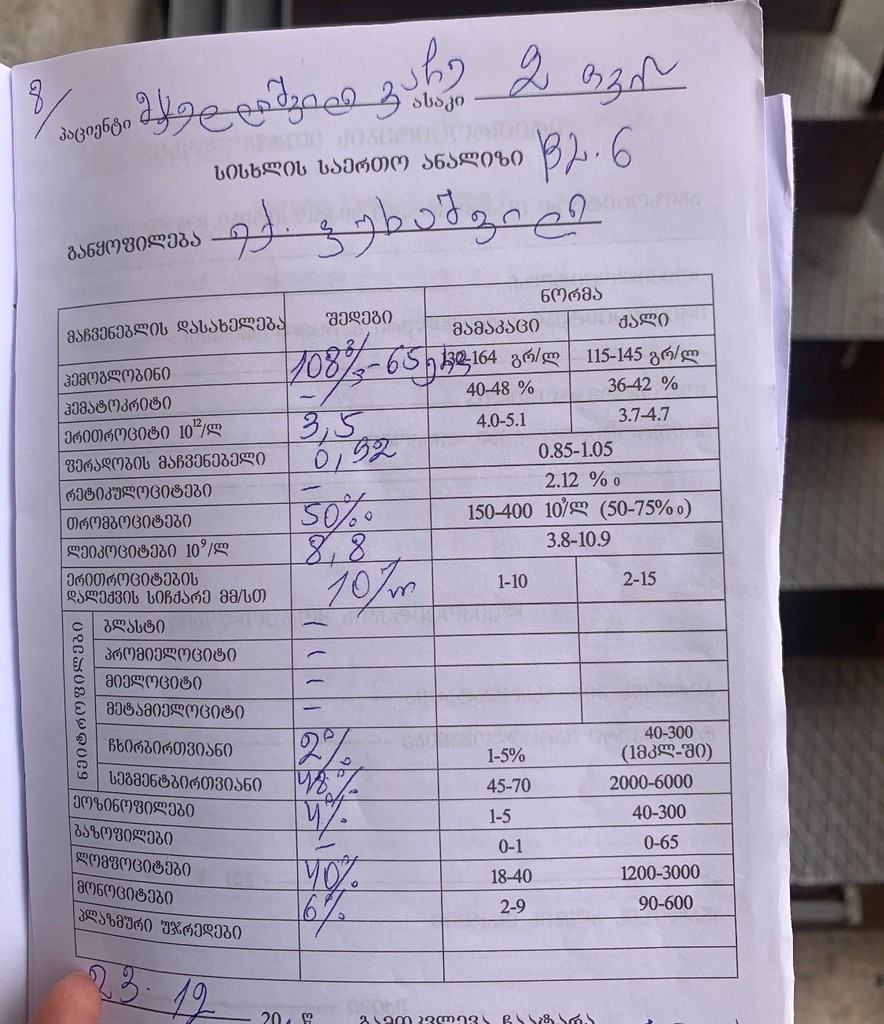 8/
პაციენტი მჭედლიშვილი ვაჩე ასაკი 2 თვის
სისხლის საერთო ანალიზი B2.6
განყოფილება ექ.
მაჩვენებლის დასახელება შედეგი ნორმა
მამაკაცი ქალი
ჰემოგლობინი 108 გ/ლ-65 ერთ 132-164 გრ/ლ 115-145 გრ/ლ
ჰემატოკრიტი – 40-48 % 36-42 %
ერითროციტი 10¹²/ლ 3,5 4.0-5.1 3.7-4.7
ფერადობის მაჩვენებელი 0,92 0.85-1.05
რეტიკულოციტები – 2.12 %o
თრომბოციტები 50%o 150-400 10⁹/ლ (50-75%o)
ლეიკოციტები 10⁹/ლ 8,8 3.8-10.9
ერითროციტების
დალექვის სიჩქარე მმ/სთ 10 1-10 2-15
ნეიტროფილები
ბლასტი –
პრომიელოციტი –
მიელოციტი –
მეტამიელოციტი –
ჩხირბირთვიანი 2% 1-5% 40-300
(1მკლ-ში)
სეგმენტბირთვიანი 48% 45-70 2000-6000
ეოზინოფილები 4% 1-5 40-300
ბაზოფილები – 0-1 0-65
ლომფოციტები 40% 18-40 1200-3000
მონოციტები 6% 2-9 90-600
პლაზმური უჯრედები
23.12 20 წ გამოკვლევა ჩაატარა